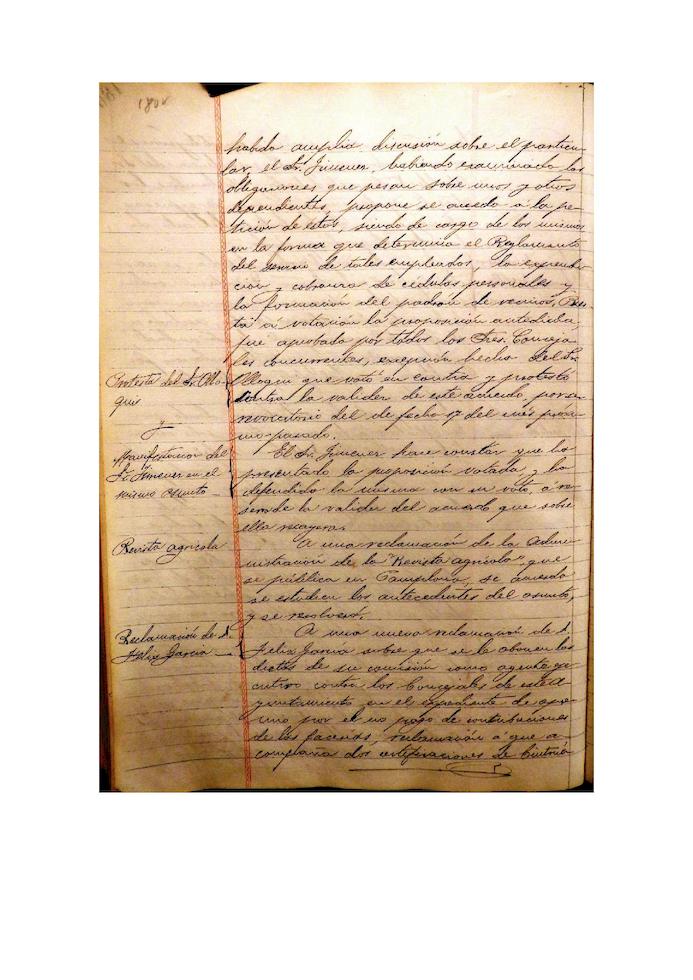 habido amplia discusión sobre el particu-
lar, el Sr. Jimenez, habiendo examinado las
obligaciones que pesan sobre unos y otros
dependientes, propone se acceda á la pe-
tición de estos, siendo de cargo de los mismos
en la forma que determina el Reglamento
del servicio de tales empleados, la expendi-
cion y cobranza de cédulas personales y
la formación del padron de vecinos. Pues-
ta á votación la proposición antedicha,
fue aprobada por todos los Sres. Conceja-
les concurrentes, excepción hecha del Sr.
Protesta del Sr. Ollo-
quis
Olloquis que votó en contra y protestó
contra la validez de este acuerdo, por ser
revocatorio del de fecha 17 del mes próxi-
mo pasado.
y
Manifestacion del
Sr. Jimenez en el
mismo asunto
El Sr. Jimenez hace constar que ha
presentado la proposición votada, y ha
defendido la misma con su voto, á re-
serva de la validez del acuerdo que sobre
ella recayera.
Revista agrícola
A una reclamación de la Admi-
nistración de la "Revista agrícola" que
se pública en Pamplona, se acuerda
se estudien los antecedentes del asunto,
y se resolverá.
Reclamación de D.
Félix Garcia
A una nueva reclamación de D.
Felix Garcia sobre que se le abonen los
dietas de su comisión como agente eje-
cutivo contra los Concejales de este A-
yuntamiento en el expediente de apre-
mio por el no pago de contribuciones
de las facerias, reclamación á que a-
compaña dos certificaciones de